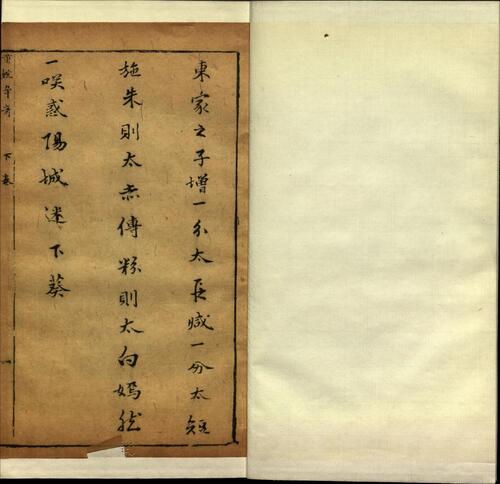 東家之子增一分太長減一分太短
施朱則太赤傅粉則太白嫣然
一咲惑陽城迷下蔡
下卷